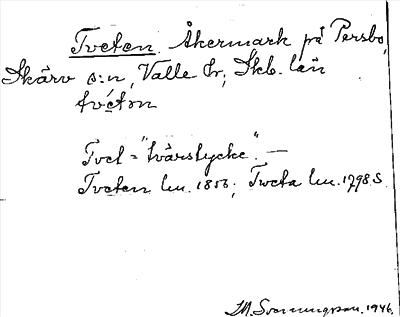 Tveten. Åkermark på Persbo,
Skärv s:n, Valle hr, Skb. län
tvéten
Tvet = "tvärstycke". —
Tveten lm. 1856; Tveta lm. 1798 S.
M. Svenungsson. 1946.